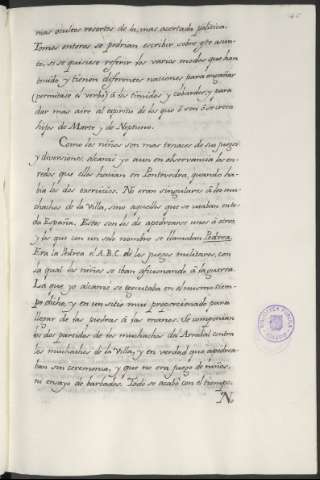 mas ocultos resortes de la mas acertada politica.
Tomos enteros se podrian escribir sobre este asun-
to, si se quisiese referir los varios modos que han
tenido y tienen diferentes naciones para engañar
(permitase el verbo) á los timidos y cobardes, y para
dar mas aire al espiritu de los que ó son ó se creen
hijos de Marte y de Neptuno.
Como los niños son mas tenaces de sus juegos
y diversiones, alcancé yo aun en observancia los en-
redos que ellos hacian en Pontevedra, quando ha-
bia los dos exercicios. No eran singulares á los mu-
chachos de la Villa, sino aquellos que se usaban en to-
da España. Estos son los de apedrearse unos á otros,
y los que con un solo nombre se llamaban Pedrea.
Era la Pedrea el A.B.C. de los juegos militares, con
la qual los niños se iban aficionando á la guerra.
La que yo alcancé se executaba en el mismo tiem-
po dicho, y en un sitio mui proporcionado para
llegar de las piedras á las manos. Se componian
los dos partidos de los muchachos del Arrabal contra
los muchachos de la Villa, y en verdad que apedrea-
ban sin ceremonia, y que no era juego de niños,
ni ensayo de barbados. Todo se acabó con el tiempo.
N,